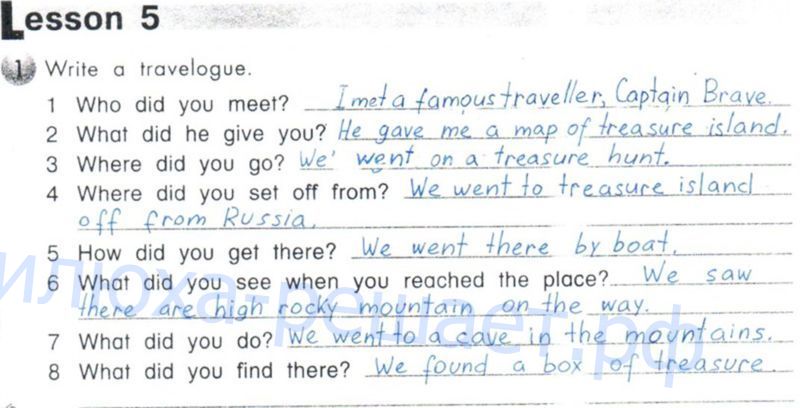 Lesson 5
1 Write a travelogue.
1 Who did you meet? I met a famous traveller, Captain Brave.
2 What did he give you? He gave me a map of treasure island.
3 Where did you go? We' went on a treasure hunt.
4 Where did you set off from? We went to treasure island
off from Russia.
5 How did you get there? We went there by boat.
6 What did you see when you reached the place? We saw
there are high rocky mountain on the way.
7 What did you do? We went to a cave in the mountains.
8 What did you find there? We found a box of treasure.
илюха-решает.рф